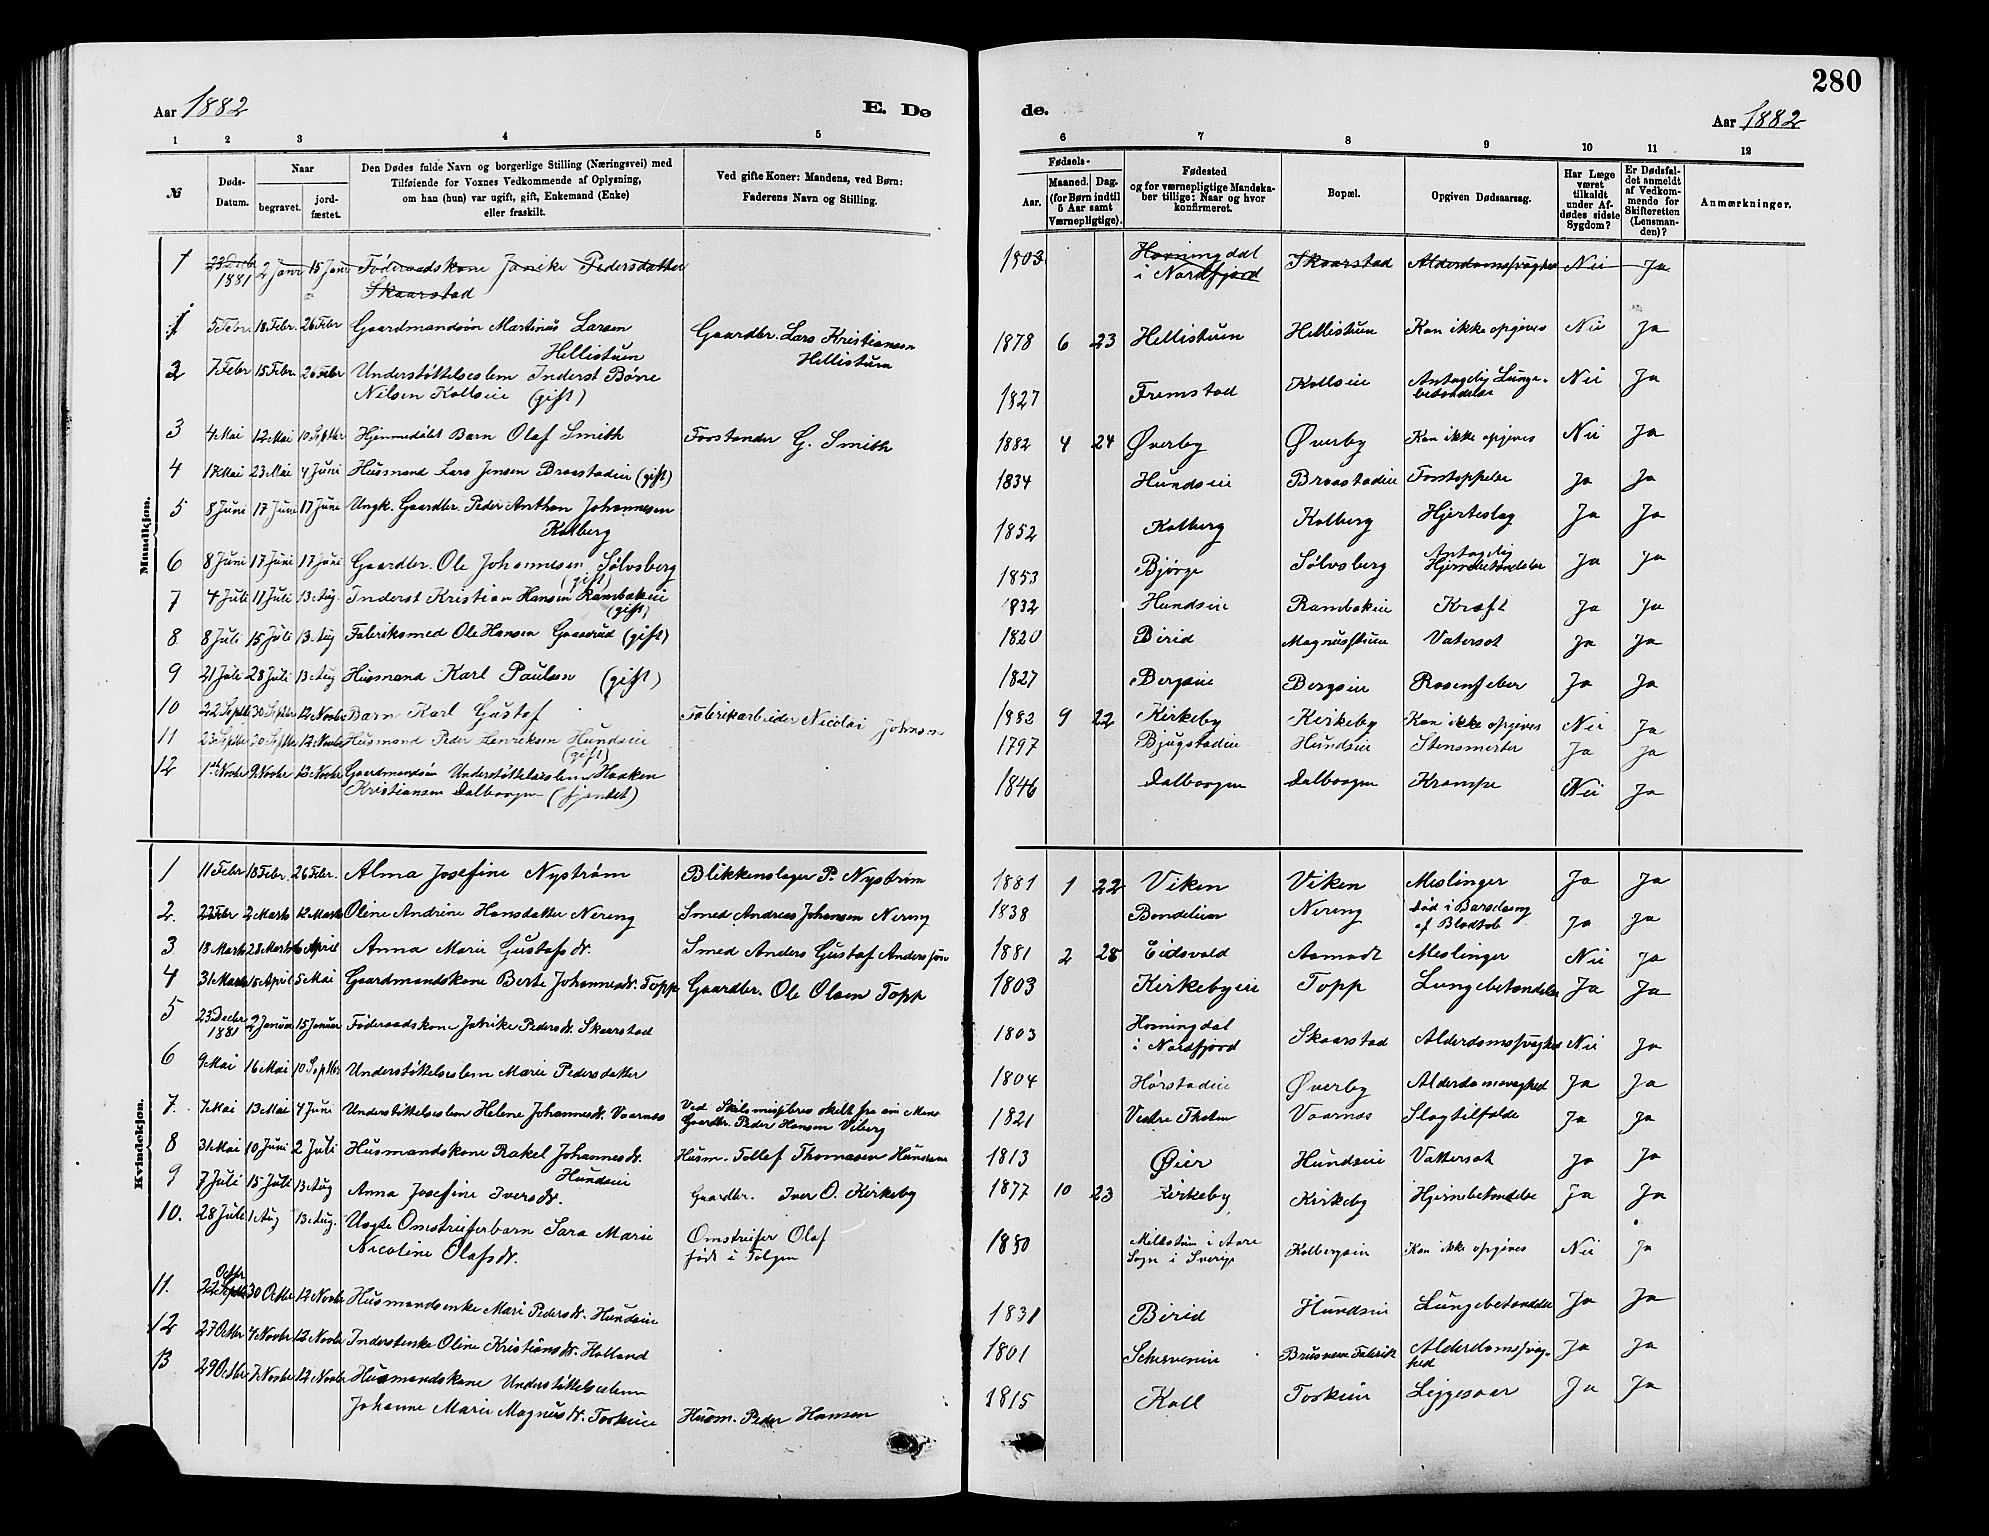 280
Aar 1882 E. Dø de. Aar 1882
1 2 3 4 5 6 7 8 9 10 11 12
№ Døds-Datum. Naar begravet. jordfæstet. Den Dødes fulde Navn og borgerlige Stilling (Næringsvei) med Tilføiende for Voxnes Vedkommende af Oplysning, om han (hun) var ugift, gift, Enkemand (Enke) eller fraskilt. Ved gifte Koner: Mandens, ved Børn: Faderens Navn og Stilling. Fødsels- Aar. Maaned. Dag. (for Børn indtil 5 Aar samt Værnepligtige). Fødested og for værnepligtige Mandskaber tillige: Naar og hvor konfirmeret. Bopæl. Opgiven Dødsaarsag. Har Læge været tilkaldt under Afdødes sidste Sygdom? Er Dødsfaldet anmeldt af Vedkommende for Skifteretten (Lensmanden)? Anmærkninger.
Mandkjøn.
1 23 Decbr 1881 2 Janr 15 Janr Føderaadskone Janike Pedersdatter Skaarstad 1803 Horningdal i Nordfjord Skaarstad Alderdomssvaghed Nei Ja
1 5 Febr. 18 Febr. 26 Febr Gaardmandsøn Martinus Larsen Hellistuen Gaardbr. Lars Kristiansen Hellistuen 1878 6 23 Hellistuen Hellistuen Kan ikke opgives Nei Ja
2 7 Febr 15 Febr. 26 Febr Understøttelseslem Inderst Børre Nilsen Kollseie (gift) 1827 Fremstad Kollseie Antagelig Lungebetændelse Nei Ja
3 4 Mai 12 Mai 10 Septbr Hjemmedøbt Barn Olaf Smith Forstander G. Smith 1882 4 24 Øverby Øverby Kan ikke opgives Nei Ja
4 17 Mai 23 Mai 4 Juni Husmand Lars Jensen Braastadeie (gift) 1834 Hundseie Braastadeie Forstoppelse Ja Ja
5 8 Juni 17 Juni 17 Juni Ungk. Gaardbr. Peder Anthon Johannesen Kolberg 1852 Kolberg Kolberg Hjerteslag Ja Ja
6 8 Juni 17 Juni 17 Juni Gaardbr. Ole Johannesen Sølvsberg (gift) 1853 Bjørge Sølvsberg Antagelig Hjernebetændelse Ja Ja
7 4 Juli 11 Juli 13 Aug. Inderst Kristian Hansen Rambekeie (gift) 1832 Hundseie Rambekeie Kræft Ja Ja
8 8 Juli 15 Juli 13 Aug Fabriksmed Ole Hansen Gaaserud (gift) 1820 Birid Magnusstuen Vatersot Ja Ja
9 21 Juli 28 Juli 13 Aug Husmand Karl Paulsen (gift) 1827 Bergseie Bergseie Rosenfeber Ja Ja
10 22 Septbr 30 Septbr 12 Novbr Barn Karl Gustaf Fabrikarbeider Nicolai Johnsen 1882 9 22 Kirkeby Kirkeby Kan ikke opgives Nei Ja
11 23 Septbr 30 Septbr 12 Novbr Husmand Peder Henriksen Hundseie (gift) 1797 Bjugstadeie Hundseie Stensmerter Ja Ja
12 1st Novbr 9 Novbr 12 Novbr Gaardmandsøn Understøttelseslem Haaken Kristiansen Dalborgen 1846 Dalborgen Dalborgen Krampe Nei Ja
Kvindekjøn.
1 11 Febr 18 Febr. 26 Febr. Alma Josefine Nystrøm Blikkenslager P. Nystrøm 1881 1 22 Viken Viken Meslinger Ja Ja
2. 22 Febr 2 Marts 12 Marts Oline Andrine Hansdatter Nereng Smed Andreas Johansen Nereng 1838 Bondelien Nereng Død i Barselseng af Blodtab Ja Ja
3 18 Marts 28 Marts 6 April Anna Marie Gustafsdr. Smed Anders Gustaf Anderssøn 1881 2 28 Eidsvold Aamodt Meslinger Nei Ja
4 31 Marts 15 April 5 Mai Gaardmandskone Berte Johannesdr. Topp Gaardbr. Ole Olsen Topp 1803 Kirkebyeie Topp Lungebetændelse Ja Ja
5 23 Decbr 1881 2 Januar 15 Januar Føderaadskone Janike Pedersdr. Skaarstad 1803 Horningdal i Nordfjord Skaarstad Alderdomssvaghed Nei Ja
6 9 Mai 16 Mai 10 Septbr Understøttelseslem Marie Pedersdatter 1804 Hørstadeie Øverby Alderdomsvaghed Ja Ja
7. 7 Mai 13 Mai 4 Juni Understøttelseslem Helene Johannesdr. Vaarnes Ved Skilsmissebrev skilt fra sin Mand Gaardbr. Peder Hansen Viberg 1821 Vestre Thoten Vaarnes Slagtilfælde Ja Ja
8 31 Mai 10 Juni 2 Juli Husmandskone Rakel Johannesdr. Hundseie Husm. Tollef Thomasen Hundseie 1813 Øier Hundseie Vattersot Ja Ja
9 7 Juli 15 Juli 13 Aug Anna Josefine Iversdr. Gaardbr. Iver O. Kirkeby 1877 10 23 Kirkeby Kirkeby Hjernebetændelse Ja Ja
10. 28 Juli 1 Aug 13 Aug. Uægte Omstreiferbarn Sara Marie Nicoline Olafsdr. Omstreifer Olaf født i Tolgen 1880 i Aare Sogn i Sverige Kolbergeie Kan ikke opgives Nei Ja
11. 22 Octbr Septbr 30 Octbr 12 Novbr Husmandsenke Mari Pedersdr. Hundseie 1831 Birid Hundseie Lungebetændelse Ja Ja
12 27 Octbr 4 Novbr 12 Novbr Inderstenke Oline Kristiansdr. Holland 1801 Brusveen Fabrik Alderdomssvaghed Ja Ja
13 29 Octbr 7 Novbr 12 Novbr Husmandskone Understøttelseslem Johanne Marie Magnusdr. Toskeeie Husm. Peder Hansen 1815 Koll Toskeeie Liggesaar Ja Ja